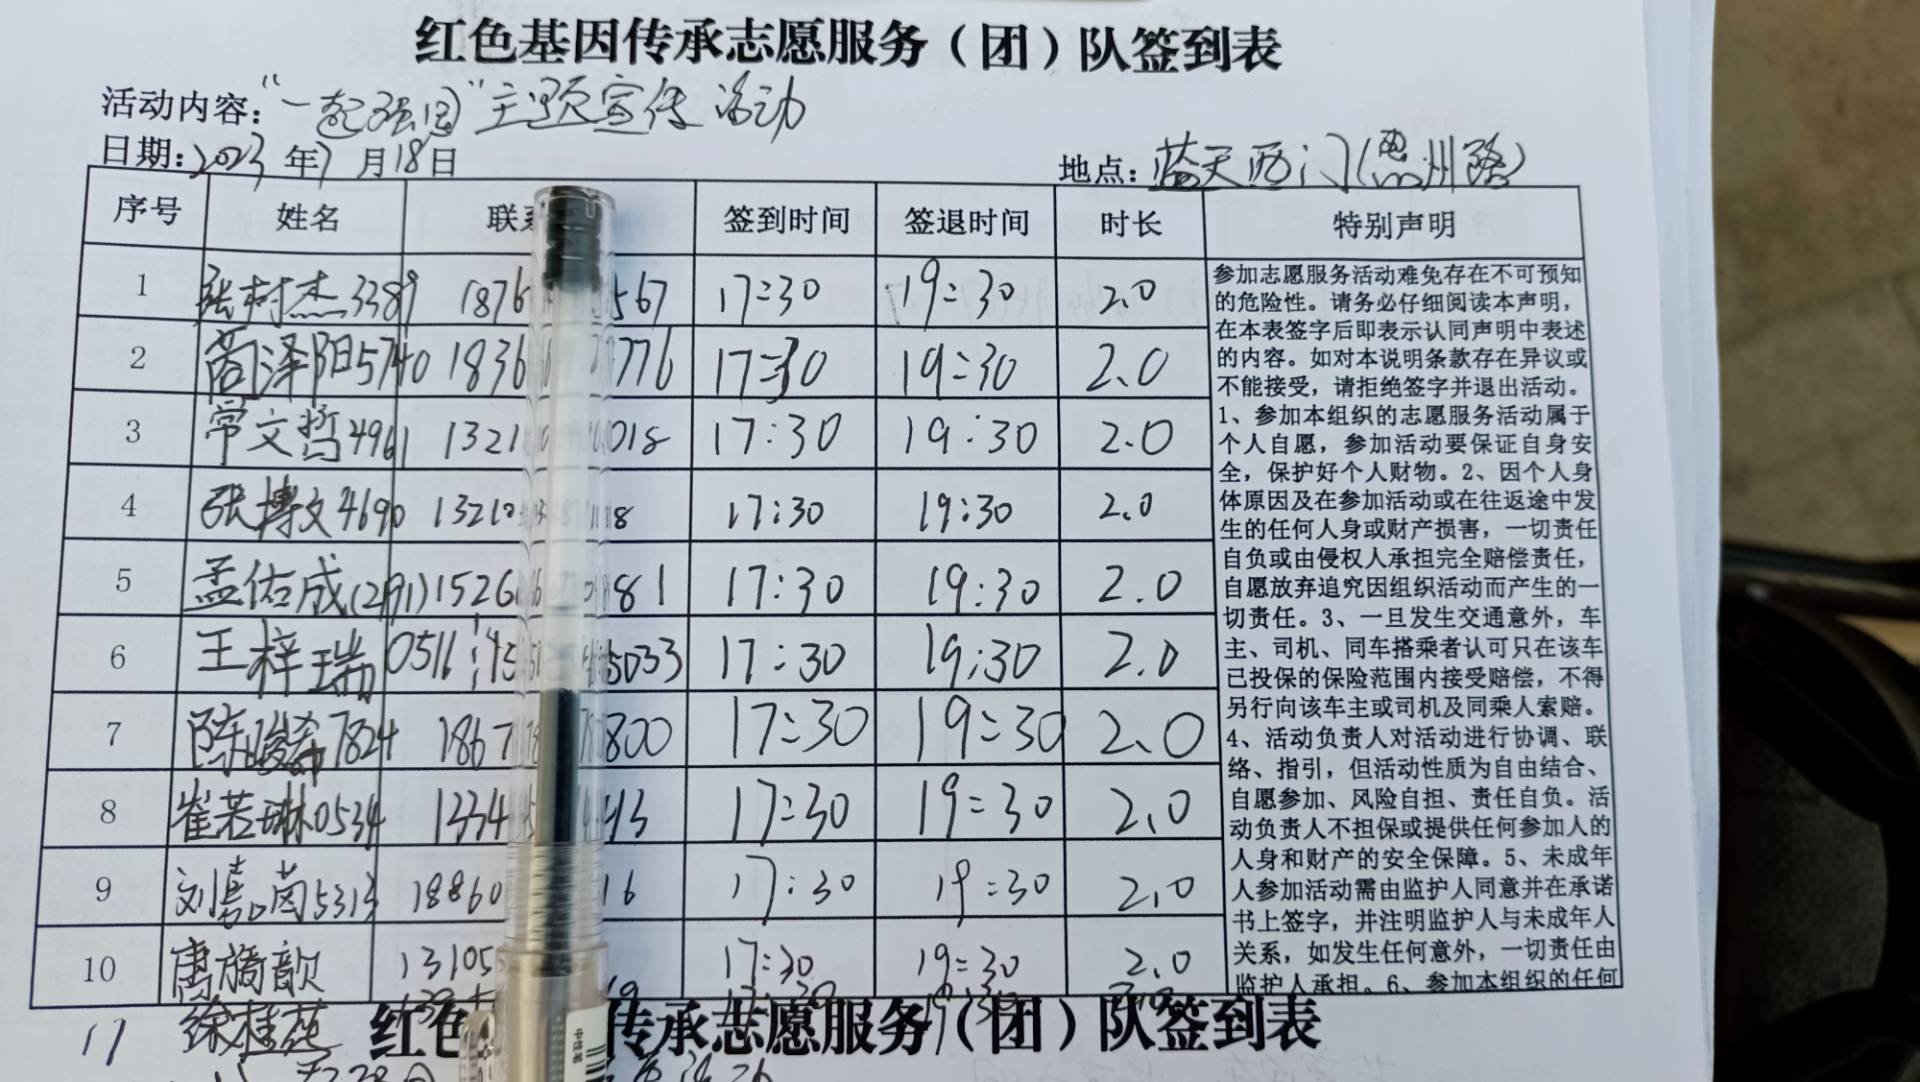 红色基因传承志愿服务（团）队签到表
活动内容："一起强国"主题宣传活动
日期：2023年7月18日
地点：蓝天西门(惠州路)
序号 姓名 联系 签到时间 签退时间 时长 特别声明
1 张树杰3389 1876 567 17:30 19:30 2.0
2 商泽阳5740 1836 776 17:30 19:30 2.0
3 常文哲4961 1321 018 17:30 19:30 2.0
4 张博文4690 1321 8 17:30 19:30 2.0
5 孟佑成(2191) 1526 81 17:30 19:30 2.0
6 王梓瑞0516 5033 17:30 19:30 2.0
7 陈晙希7824 1867 800 17:30 19:30 2.0
8 崔若琳0534 1334 43 17:30 19:30 2.0
9 刘嘉茵5313 18860 16 17:30 19:30 2.0
10 唐旖歆 13105 17:30 19:30 2.0
参加志愿服务活动难免存在不可预知
的危险性。请务必仔细阅读本声明，
在本表签字后即表示认同声明中表述
的内容。如对本说明条款存在异议或
不能接受，请拒绝签字并退出活动。
1、参加本组织的志愿服务活动属于
个人自愿，参加活动要保证自身安
全，保护好个人财物。2、因个人身
体原因及在参加活动或在往返途中发
生的任何人身或财产损害，一切责任
自负或由侵权人承担完全赔偿责任，
自愿放弃追究因组织活动而产生的一
切责任。3、一旦发生交通意外，车
主、司机、同车搭乘者认可只在该车
已投保的保险范围内接受赔偿，不得
另行向该车主或司机及同乘人索赔。
4、活动负责人对活动进行协调、联
络、指引，但活动性质为自由结合、
自愿参加、风险自担、责任自负。活
动负责人不担保或提供任何参加人的
人身和财产的安全保障。5、未成年
人参加活动需由监护人同意并在承诺
书上签字，并注明监护人与未成年人
关系，如发生任何意外，一切责任由
监护人承担。6、参加本组织的任何
11 徐桂花
红色 传承志愿服务（团）队签到表
中性笔